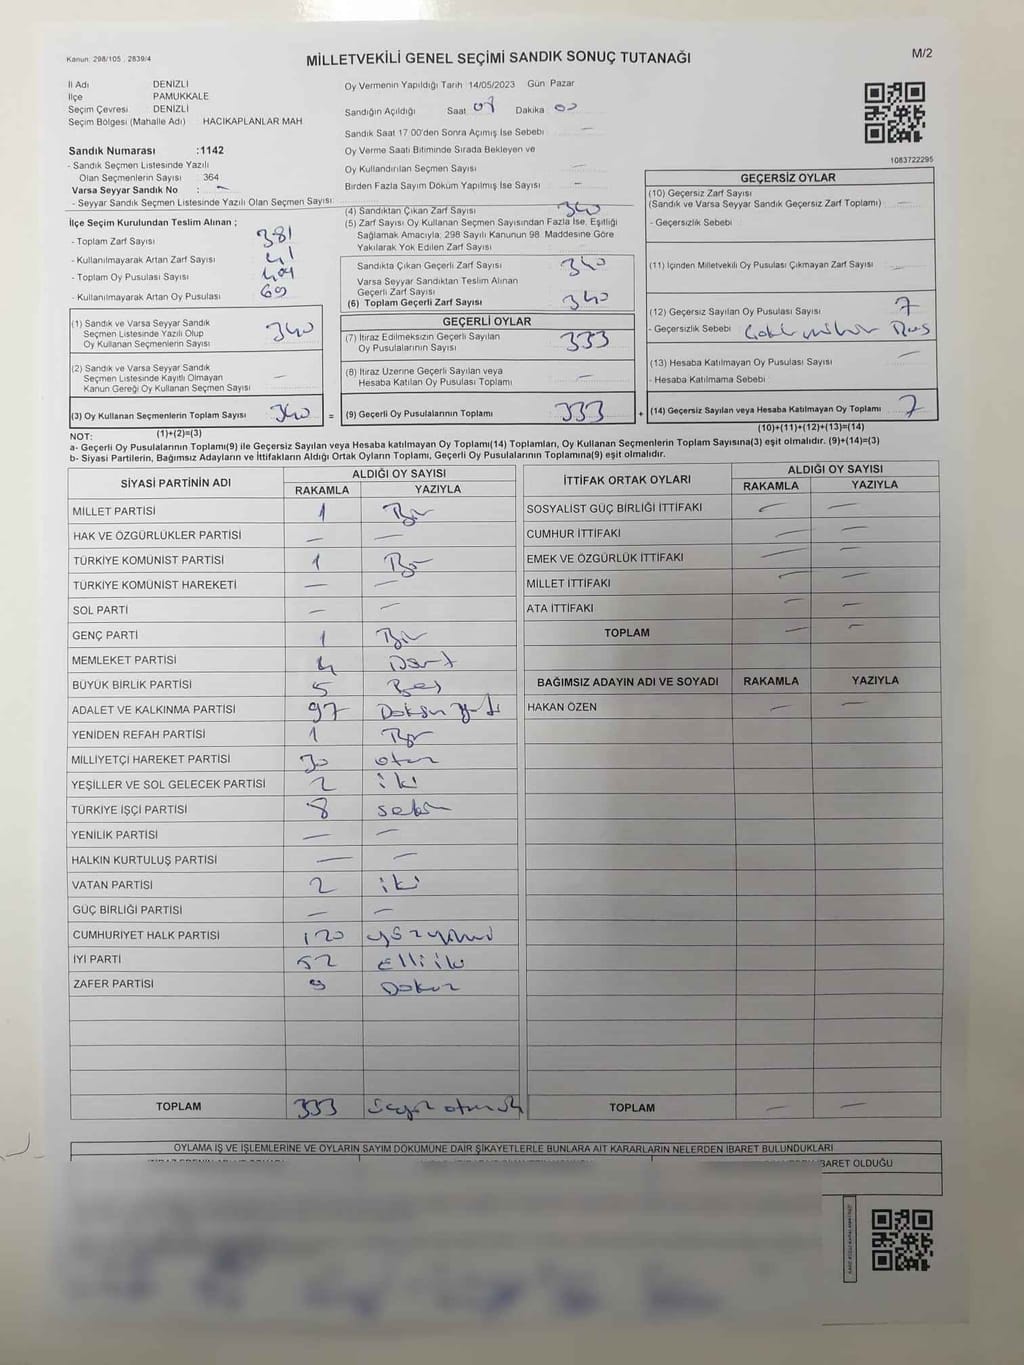 Kanun: 298/105, 2839/4
MİLLETVEKİLİ GENEL SEÇİMİ SANDIK SONUÇ TUTANAĞI
M/2
İl Adı DENİZLİ
İlçe PAMUKKALE
Seçim Çevresi DENİZLİ
Seçim Bölgesi (Mahalle Adı) HACIKAPLANLAR MAH
Sandık Numarası :1142
- Sandık Seçmen Listesinde Yazılı
Olan Seçmenlerin Sayısı : 364
Varsa Seyyar Sandık No : -
- Seyyar Sandık Seçmen Listesinde Yazılı Olan Seçmen Sayısı:
Oy Vermenin Yapıldığı Tarih 14/05/2023 Gün Pazar
Sandığın Açıldığı Saat 08 Dakika 00
Sandık Saat 17 00'den Sonra Açımış İse Sebebi —
Oy Verme Saati Bitiminde Sırada Bekleyen ve
Oy Kullandırılan Seçmen Sayısı —
Birden Fazla Sayım Döküm Yapılmış İse Sayısı -
1083722295
İlçe Seçim Kurulundan Teslim Alınan ;
- Toplam Zarf Sayısı 381
- Kullanılmayarak Artan Zarf Sayısı 41
- Toplam Oy Pusulası Sayısı 409
- Kullanılmayarak Artan Oy Pusulası 69
(1) Sandık ve Varsa Seyyar Sandık
Seçmen Listesinde Yazılı Olup
Oy Kullanan Seçmenlerin Sayısı 340
(2) Sandık ve Varsa Seyyar Sandık
Seçmen Listesinde Kayıtlı Olmayan
Kanun Gereği Oy Kullanan Seçmen Sayısı —
(3) Oy Kullanan Seçmenlerin Toplam Sayısı 340 =
(1)+(2)=(3)
(4) Sandıktan Çıkan Zarf Sayısı 340
(5) Zarf Sayısı Oy Kullanan Seçmen Sayısından Fazla İse, Eşitliği
Sağlamak Amacıyla, 298 Sayılı Kanunun 98. Maddesine Göre
Yakılarak Yok Edilen Zarf Sayısı —
Sandıkta Çıkan Geçerli Zarf Sayısı 340
Varsa Seyyar Sandıktan Teslim Alınan
Geçerli Zarf Sayısı
(6) Toplam Geçerli Zarf Sayısı 340
GEÇERLİ OYLAR
(7) İtiraz Edilmeksizin Geçerli Sayılan
Oy Pusulalarının Sayısı 333
(8) İtiraz Üzerine Geçerli Sayılan veya
Hesaba Katılan Oy Pusulası Toplamı —
(9) Geçerli Oy Pusulalarının Toplamı 333 +
GEÇERSİZ OYLAR
(10) Geçersiz Zarf Sayısı
(Sandık ve Varsa Seyyar Sandık Geçersiz Zarf Toplamı) —
- Geçersizlik Sebebi
(11) İçinden Milletvekili Oy Pusulası Çıkmayan Zarf Sayısı —
(12) Geçersiz Sayılan Oy Pusulası Sayısı 7
- Geçersizlik Sebebi
(13) Hesaba Katılmayan Oy Pusulası Sayısı —
- Hesaba Katılmama Sebebi
(14) Geçersiz Sayılan veya Hesaba Katılmayan Oy Toplamı 7
(10)+(11)+(12)+(13)=(14)
NOT:
a- Geçerli Oy Pusulalarının Toplamı(9) ile Geçersiz Sayılan veya Hesaba katılmayan Oy Toplamı(14) Toplamları, Oy Kullanan Seçmenlerin Toplam Sayısına(3) eşit olmalıdır. (9)+(14)=(3)
b- Siyasi Partilerin, Bağımsız Adayların ve İttifakların Aldığı Ortak Oyların Toplamı, Geçerli Oy Pusulalarının Toplamına(9) eşit olmalıdır.
SİYASİ PARTİNİN ADI ALDIĞI OY SAYISI
RAKAMLA YAZIYLA
MİLLET PARTİSİ 1 Bir
HAK VE ÖZGÜRLÜKLER PARTİSİ — —
TÜRKİYE KOMÜNİST PARTİSİ 1 Bir
TÜRKİYE KOMÜNİST HAREKETİ — —
SOL PARTİ — —
GENÇ PARTİ 1 Bir
MEMLEKET PARTİSİ 4 Dört
BÜYÜK BİRLİK PARTİSİ 5 Beş
ADALET VE KALKINMA PARTİSİ 97 Doksan yedi
YENİDEN REFAH PARTİSİ 1 Bir
MİLLİYETÇİ HAREKET PARTİSİ 30 otuz
YEŞİLLER VE SOL GELECEK PARTİSİ 2 iki
TÜRKİYE İŞÇİ PARTİSİ 8 sekiz
YENİLİK PARTİSİ — —
HALKIN KURTULUŞ PARTİSİ — —
VATAN PARTİSİ 2 iki
GÜÇ BİRLİĞİ PARTİSİ — —
CUMHURİYET HALK PARTİSİ 120 yüz yirmi
İYİ PARTİ 52 Elli iki
ZAFER PARTİSİ 9 Dokuz
TOPLAM 333
İTTİFAK ORTAK OYLARI ALDIĞI OY SAYISI
RAKAMLA YAZIYLA
SOSYALİST GÜÇ BİRLİĞİ İTTİFAKI — —
CUMHUR İTTİFAKI — —
EMEK VE ÖZGÜRLÜK İTTİFAKI — —
MİLLET İTTİFAKI — —
ATA İTTİFAKI — —
TOPLAM — —
BAĞIMSIZ ADAYIN ADI VE SOYADI RAKAMLA YAZIYLA
HAKAN ÖZEN — —
TOPLAM — —
OYLAMA İŞ VE İŞLEMLERİNE VE OYLARIN SAYIM DÖKÜMÜNE DAİR ŞİKAYETLERLE BUNLARA AİT KARARLARIN NELERDEN İBARET BULUNDUKLARI
BARET OLDUĞU